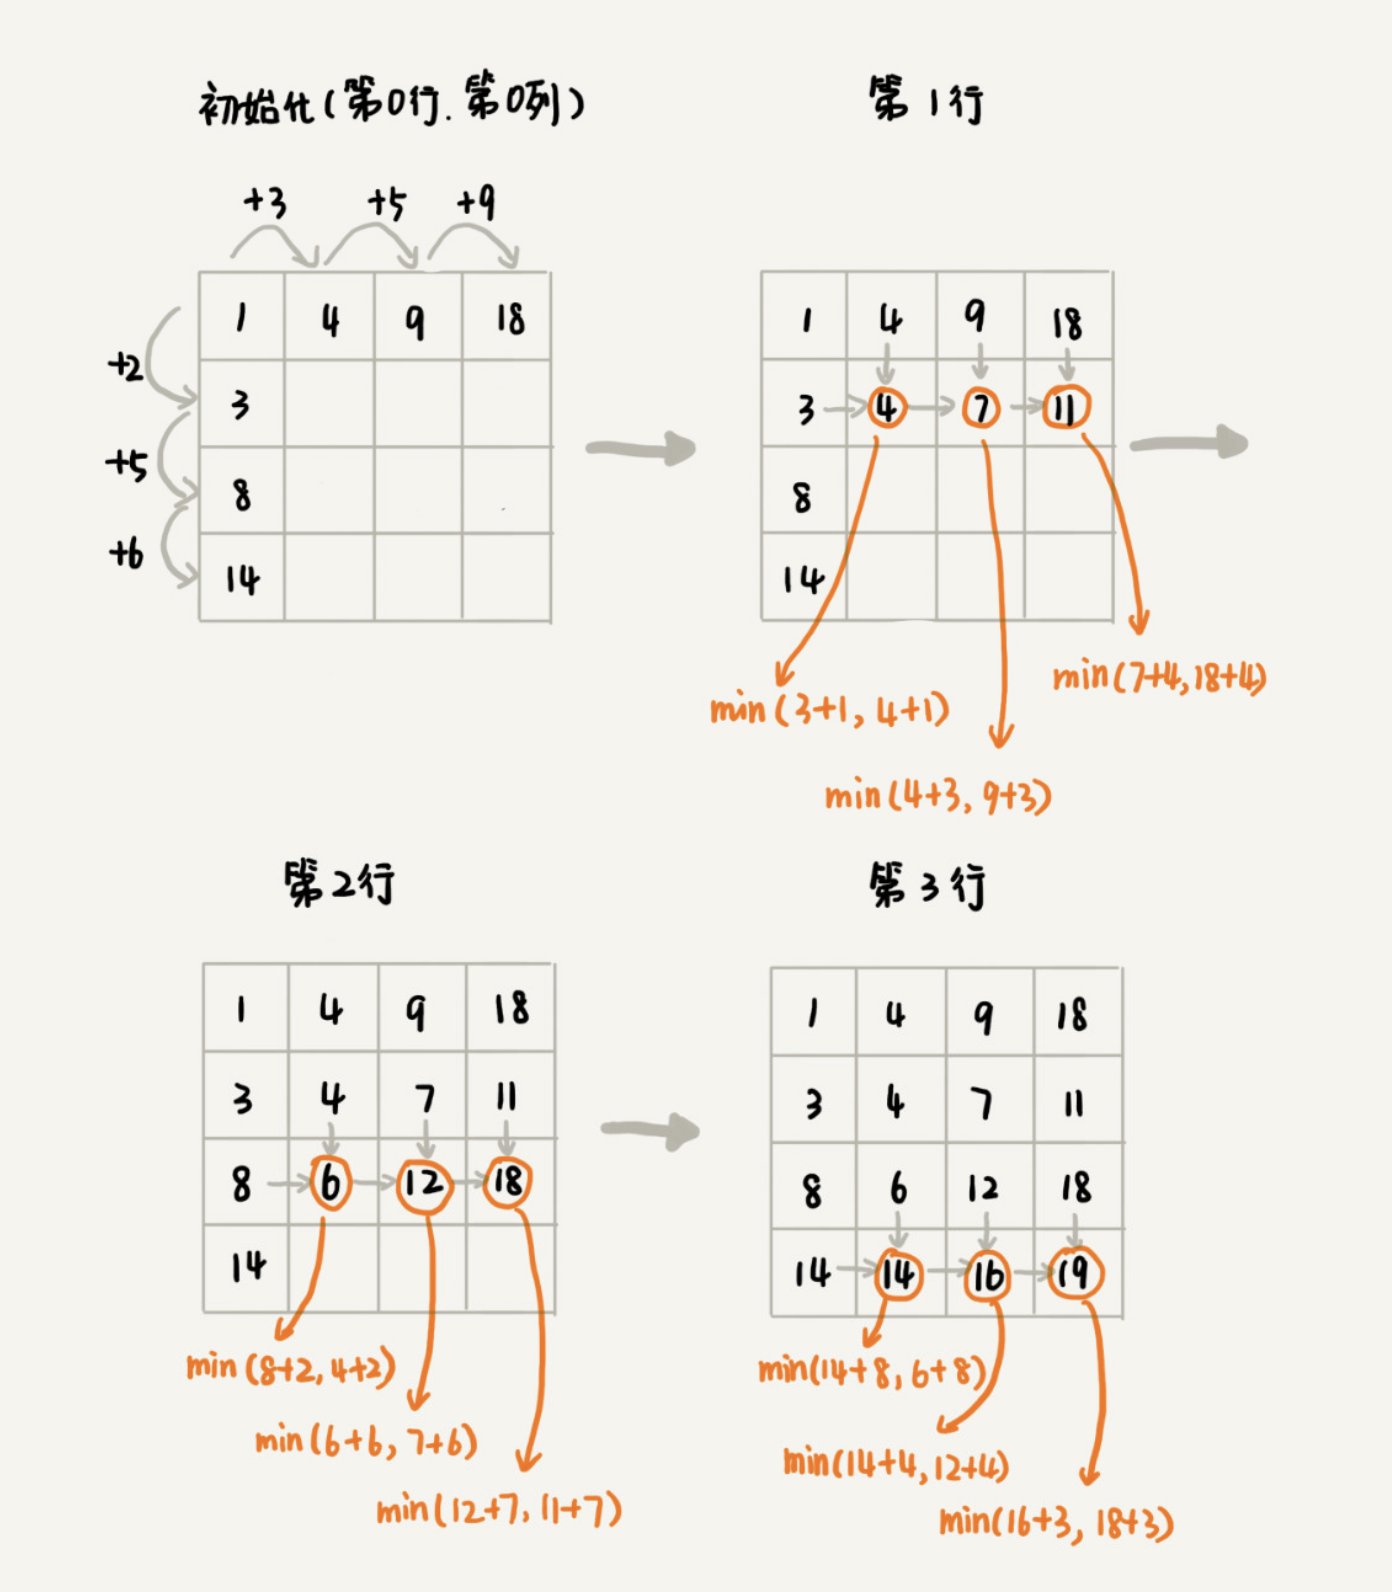 初始化(第0行.第0列)
+3 +5 +9
1 4 9 18
+2
3
+5
8
+6
14
第1行
1 4 9 18
3 4 7 11
8
14
min(7+4,18+4)
min(3+1, 4+1)
min(4+3, 9+3)
第2行
1 4 9 18
3 4 7 11
8 6 12 18
14
min(8+2,4+2)
min(6+6, 7+6)
min(12+7, 11+7)
第3行
1 4 9 18
3 4 7 11
8 6 12 18
14 14 16 19
min(14+8, 6+8)
min(14+4,12+4)
min(16+3, 18+3)